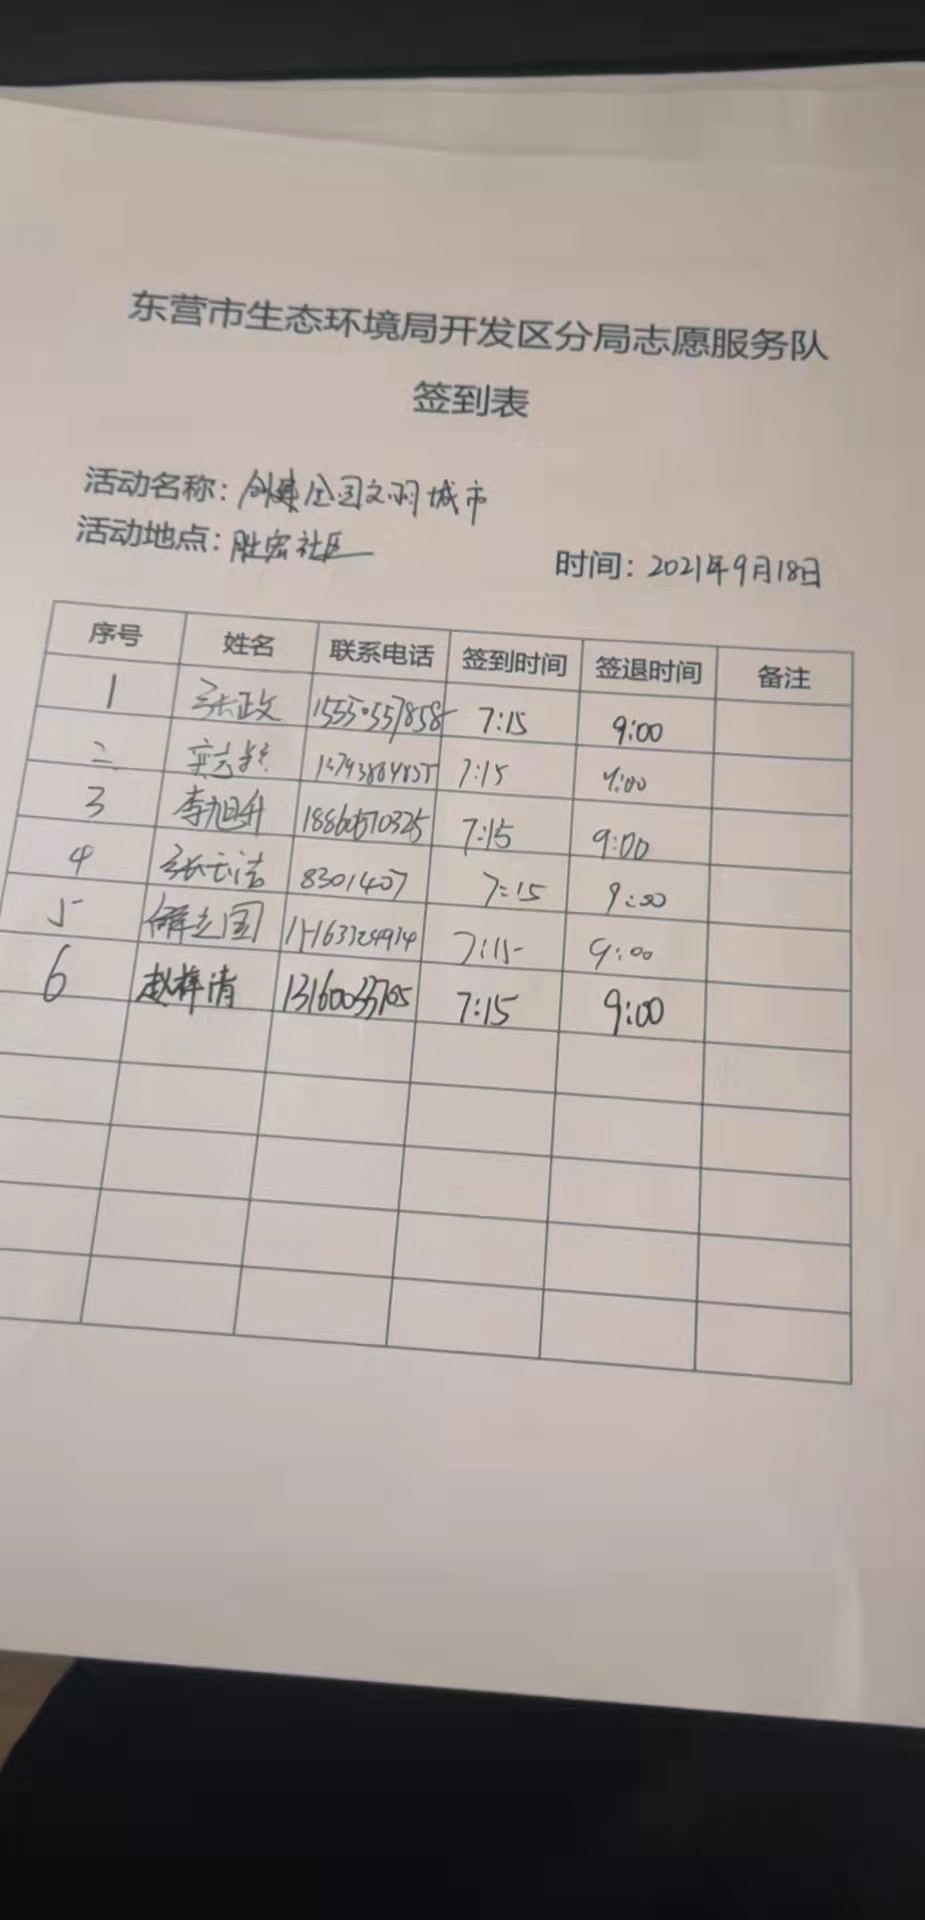 东营市生态环境局开发区分局志愿服务队
签到表
活动名称：创建全国文明城市
活动地点：胜宏社区 时间：2021年9月18日
序号 姓名 联系电话 签到时间 签退时间 备注
1 张政 15550557858 7:15 9:00
二 7:15 9:00
3 李旭升 18860570325 7:15 9:00
4 8301407 7:15 9:00
5 解立国 7:15 9:00
6 赵梓清 7:15 9:00